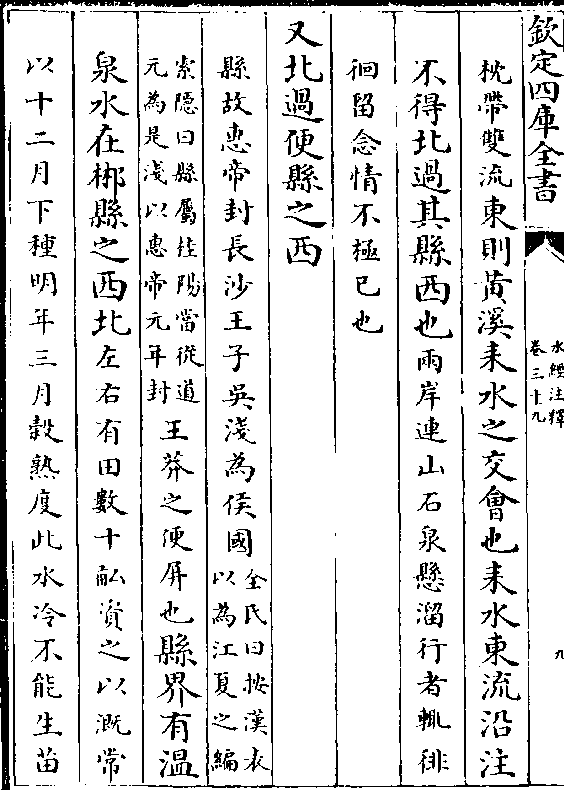 欽定四庫全書
水經注釋
卷三十九
九
枕帶雙流東則黃溪耒水之交會也耒水東流沿注
不得北過其縣西也兩岸連山石泉懸溜行者輙徘
徊留念情不極已也
又北過便縣之西
縣故惠帝封長沙王子吳淺為侯國全氏曰按漢表
以為江夏之編
索隱曰縣屬桂陽當從道
元為是淺以惠帝元年封王莽之便屏也縣界有溫
泉水在郴縣之西北左右有田數十畝資之以溉常
以十二月下種明年三月穀熟度此水冷不能生苗